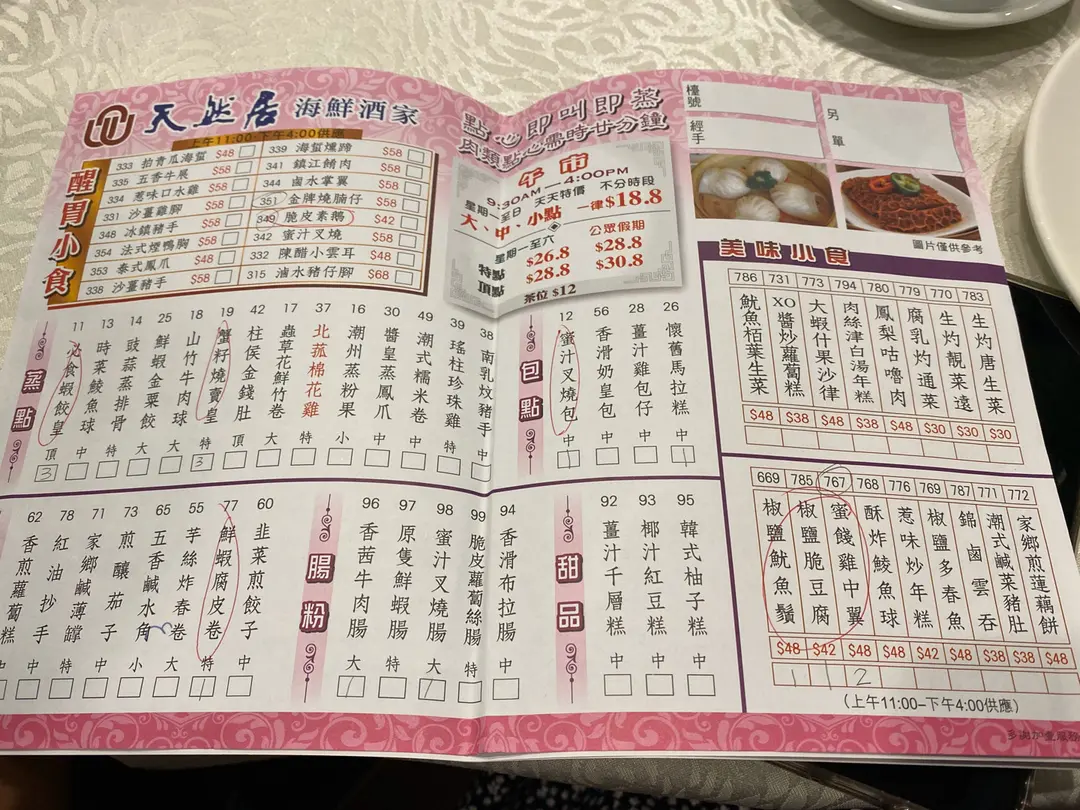 天然居 海鮮酒家
上午11:00-下午4:00供應
醒胃小食
333 拍青瓜海蜇 $48
335 五香牛展 $58
334 惹味口水雞 $58
331 沙薑雞腳 $58
348 冰鎮豬手 $58
354 法式煙鴨胸 $58
353 泰式鳳爪 $48
338 沙薑豬手 $58
339 海蜇燻蹄 $58
341 鎮江餚肉 $58
344 鹵水掌翼 $58
351 金牌燒腩仔 $58
349 脆皮素鵝 $42
342 蜜汁叉燒 $58
332 陳醋小雲耳 $48
315 滷水豬仔腳 $68
點心即叫即蒸
肉類點心需時廿分鐘
午市
9:30AM—4:00PM
星期一至日 天天特價 不分時段
大、中、小點 一律$18.8
星期一至六 公眾假期
特點 $26.8 $28.8
頂點 $28.8 $30.8
茶位 $12
檯號
經手
另單
圖片僅供參考
蒸點
11 必食蝦餃皇 頂 3
13 時菜鯪魚球 中
14 豉蒜蒸排骨 特
25 鮮蝦金粟餃 大
18 山竹牛肉球 大
19 蟹籽燒賣皇 特 3
42 柱侯金錢肚 頂
17 蟲草花鮮竹卷 大
37 北菰棉花雞 特
16 潮州蒸粉果 小
30 醬皇蒸鳳爪 中
49 潮式糯米卷 中
39 瑤柱珍珠雞 特
38 南乳炆豬手 中
包點
12 蜜汁叉燒包 中 1
56 香滑奶皇包 中
28 薑汁雞包仔 中
26 懷舊馬拉糕 中 1
美味小食
786 魷魚栢葉生菜 $48
731 XO醬炒蘿蔔糕 $38
773 大蝦什果沙律 $48
794 肉絲津白湯年糕 $38
780 鳳梨咕嚕肉 $48
779 腐乳灼通菜 $30
770 生灼靚菜遠 $30
783 生灼唐生菜 $30
62 香煎蘿蔔糕 中
78 紅油抄手 中
71 家鄉鹹薄罉 特
73 煎釀茄子 中
65 五香鹹水角 小
55 芋絲炸春卷 大
77 鮮蝦腐皮卷 特 1
60 韭菜煎餃子 中
腸粉
96 香茜牛肉腸 大 1
97 原隻鮮蝦腸 特
98 蜜汁叉燒腸 大 1
99 脆皮蘿蔔絲腸 特
94 香滑布拉腸 中
甜品
92 薑汁千層糕 中
93 椰汁紅豆糕 中
95 韓式柚子糕 中
669 椒鹽魷魚鬚 $48 1
785 椒鹽脆豆腐 $42 1
767 蜜餞雞中翼 $48 2
768 酥炸鯪魚球 $48
776 惹味炒年糕 $42
769 椒鹽多春魚 $48
787 錦鹵雲吞 $38
771 潮式鹹菜豬肚 $38
772 家鄉煎蓮藕餅 $48
(上午11:00-下午4:00供應)